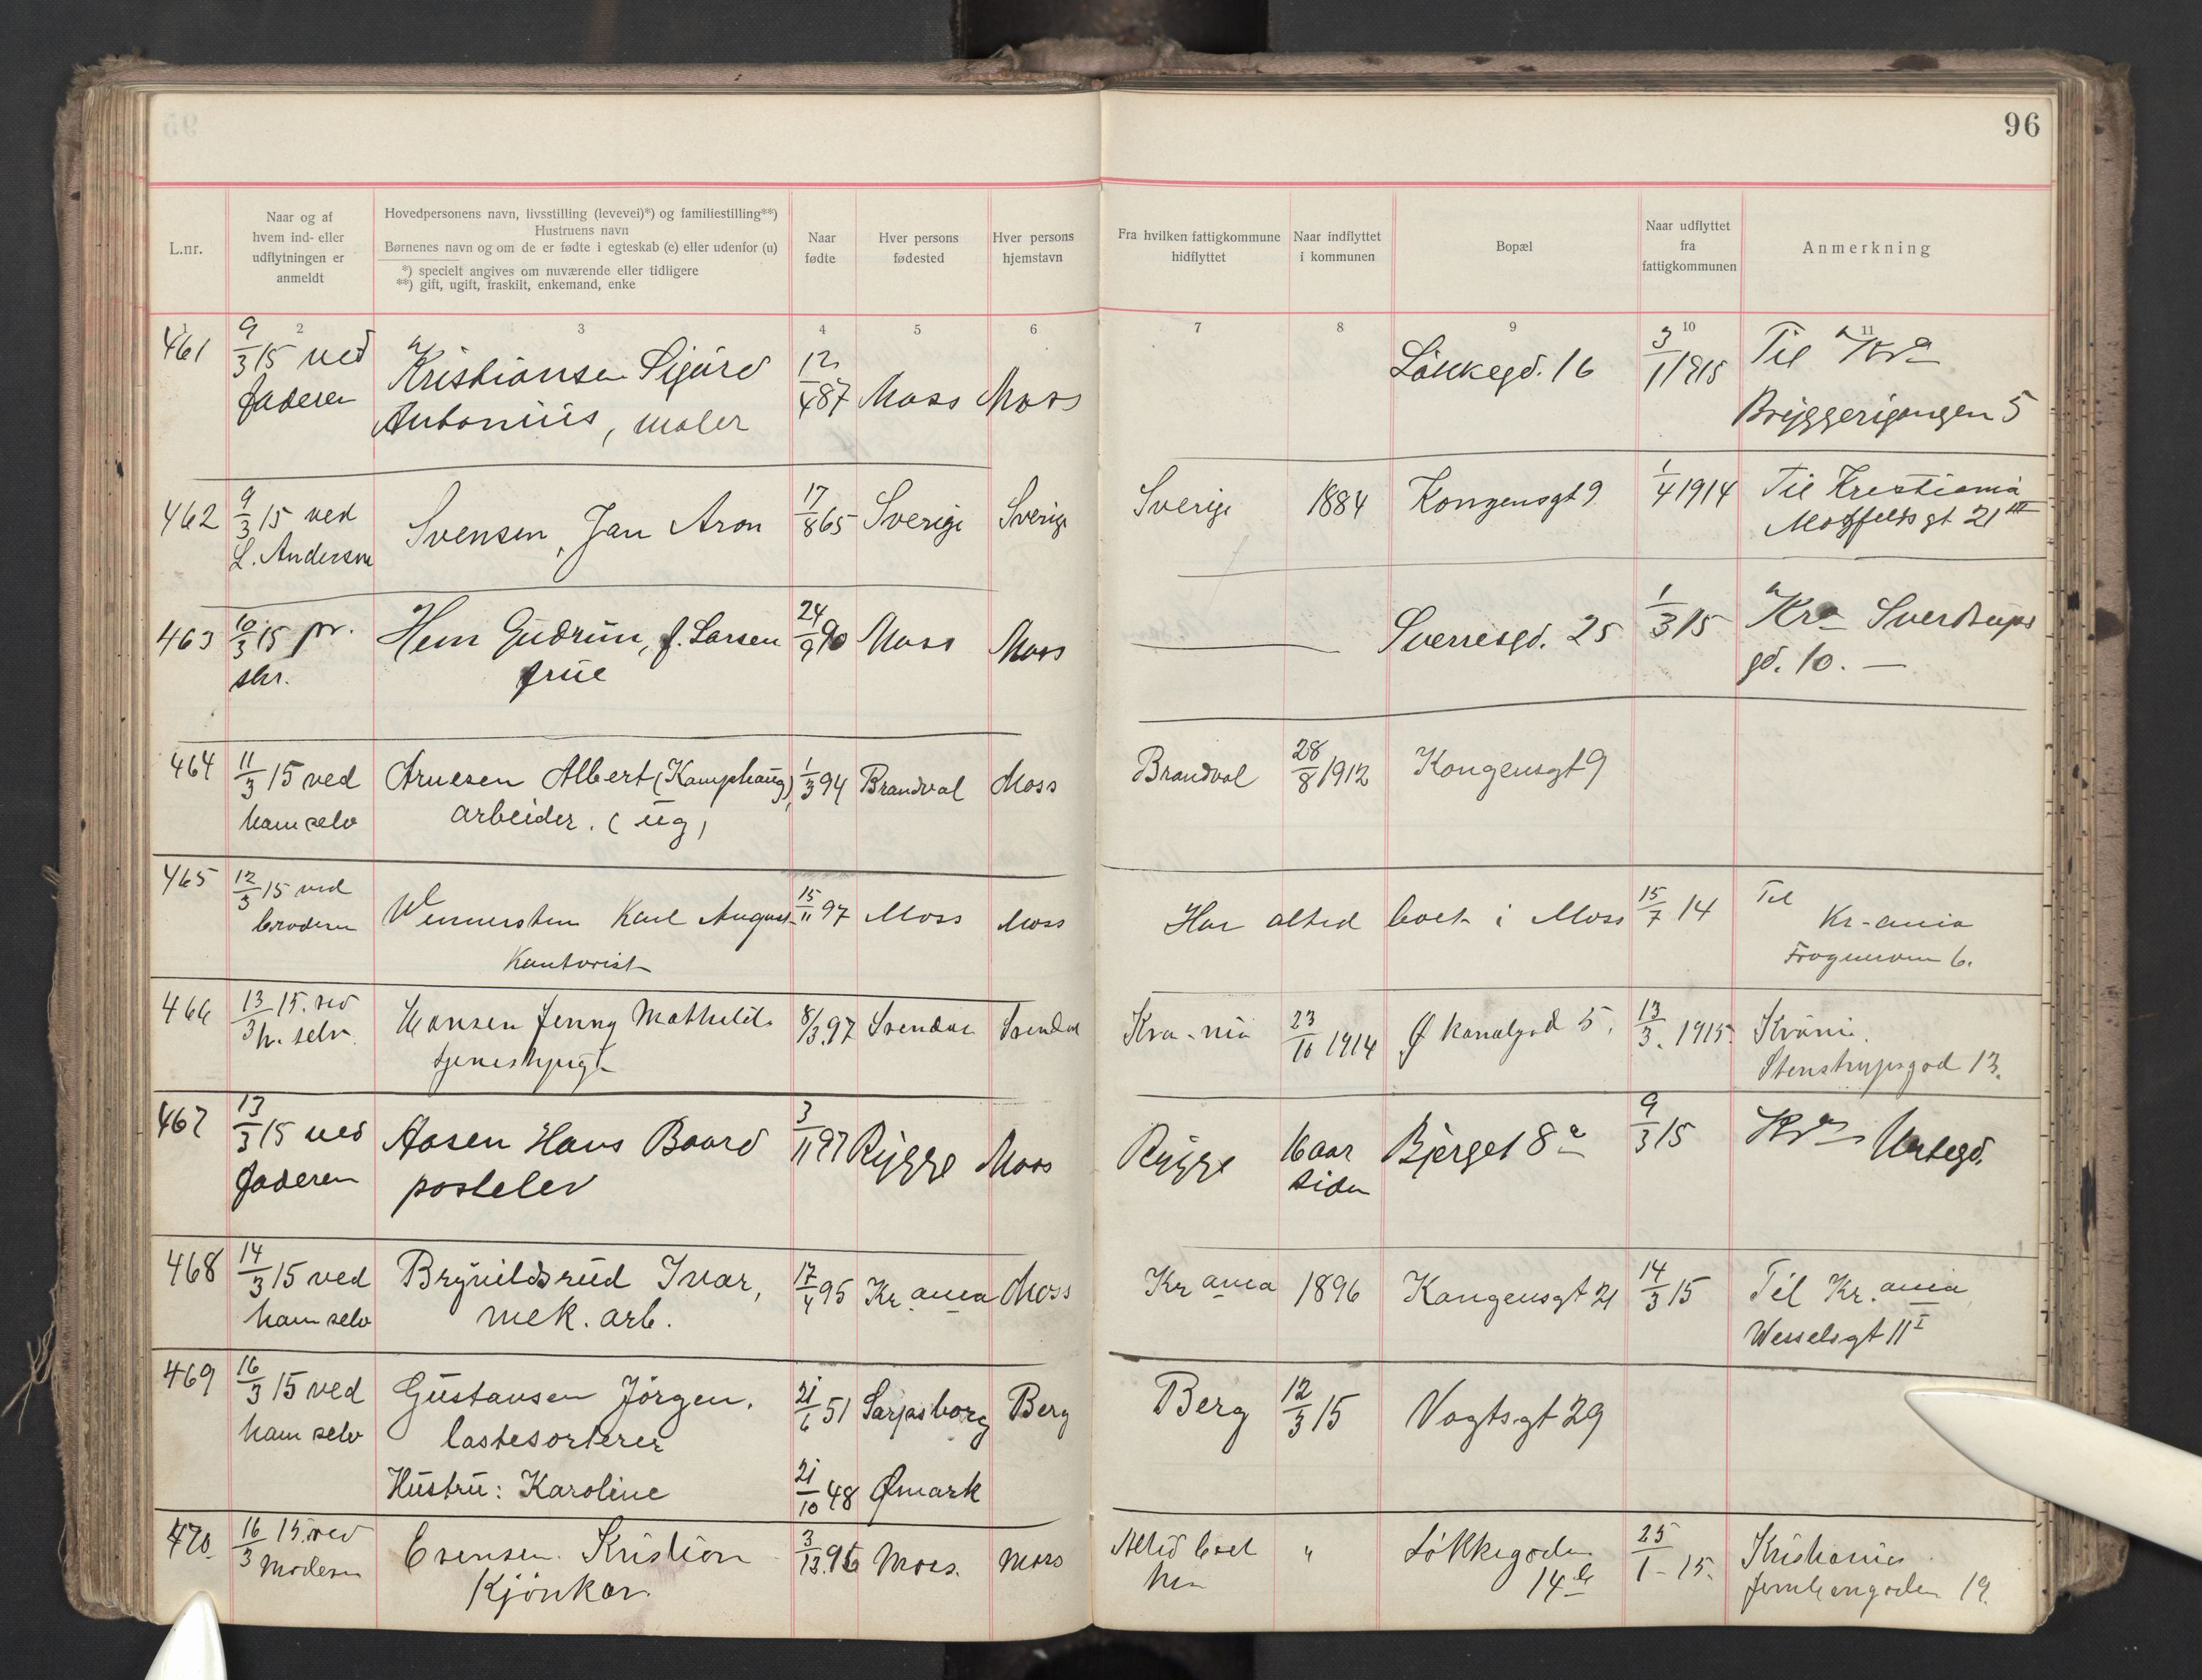 96
L.nr.
Naar og af
hvem ind- eller
udflytningen er
anmeldt
Hovedpersonens navn, livsstilling (levevei)*) og familiestilling**)
Hustruens navn
Børnenes navn og om de er fødte i egteskab (e) eller udenfor (u)
*) specielt angives om nuværende eller tidligere
**) gift, ugift, fraskilt, enkemand, enke
Naar
fødte
Hver persons
fødested
Hver persons
hjemstavn
Fra hvilken fattigkommune
hidflyttet
Naar indflyttet
i kommunen
Bopæl
Naar udflyttet
fra
fattigkommunen
Anmerkning
1 2 3 4 5 6 7 8 9 10 11
461 9/3 15 ved Kristiansen Sigurd 12/4 87 Moss Moss Løkkegd. 16 3/1 1915 Til Kra
faderen Antonius, maler Bryggerigangen 5
462 9/3 15 ved Svensen, Jan Aron 17/8 65 Sverige Sverige Sverige 1884 Kongensgt 9 1/4 1914 Til Kristiania
L. Andersen gt 21 III
463 10/3 15 pr. Hem Gudrun, f. Larsen 24/9 90 Moss Moss Sverresgd. 25 1/3 15 Kra Sverdrups
skr. frue gd. 10.
464 11/3 15 ved Arnesen Albert (Kamphaug), 1/3 94 Brandval Moss Brandval 28/8 1912 Kongensgt 9
ham selv arbeider. (ug)
465 12/3 15 ved Wennersten Karl August 15/11 97 Moss Moss Har altid boet i Moss 15/7 14 Til
broderen Kr-ania
Kontorist Frognerveien 6.
466 13/3 15. ved Hansen Jenny Mathilde 8/3. 97 Kra-nia 23/10 1914 Ø Kanalgad 5. 13/3. 1915. Kr.ani.
h. selv. tjenestepige Stenstrupsgad 13.
467 13/3 15 ved Aasen Hans Baard 3/11 97 Rygge Moss Rygge 16 aar Bjerget 8a 9/3 15 Kra Urtegd.
faderen postelev siden
468 14/3 15 ved Brynildsrud Ivar, 17/4 95 Kr.ania Moss Kr ania 1896 Kongensgt 21 14/3 15 Til Kr.ania
ham selv mek. arb. Wesselsgt 11 I
469 16/3 15 ved Gustavsen Jørgen. 21/6 51 Sarpsborg Berg Berg 12/3 15 Vogtsgt 29
ham selv lastesorterer
Hustru: Karoline 21/10 48 Ømark
470. 16/3 15. ved Evensen Kristian 3/12. 95 Moss. Moss Altid boet " Løkkegaden 25/1 - 15. Kristiania
Moderen her 14 b 19.